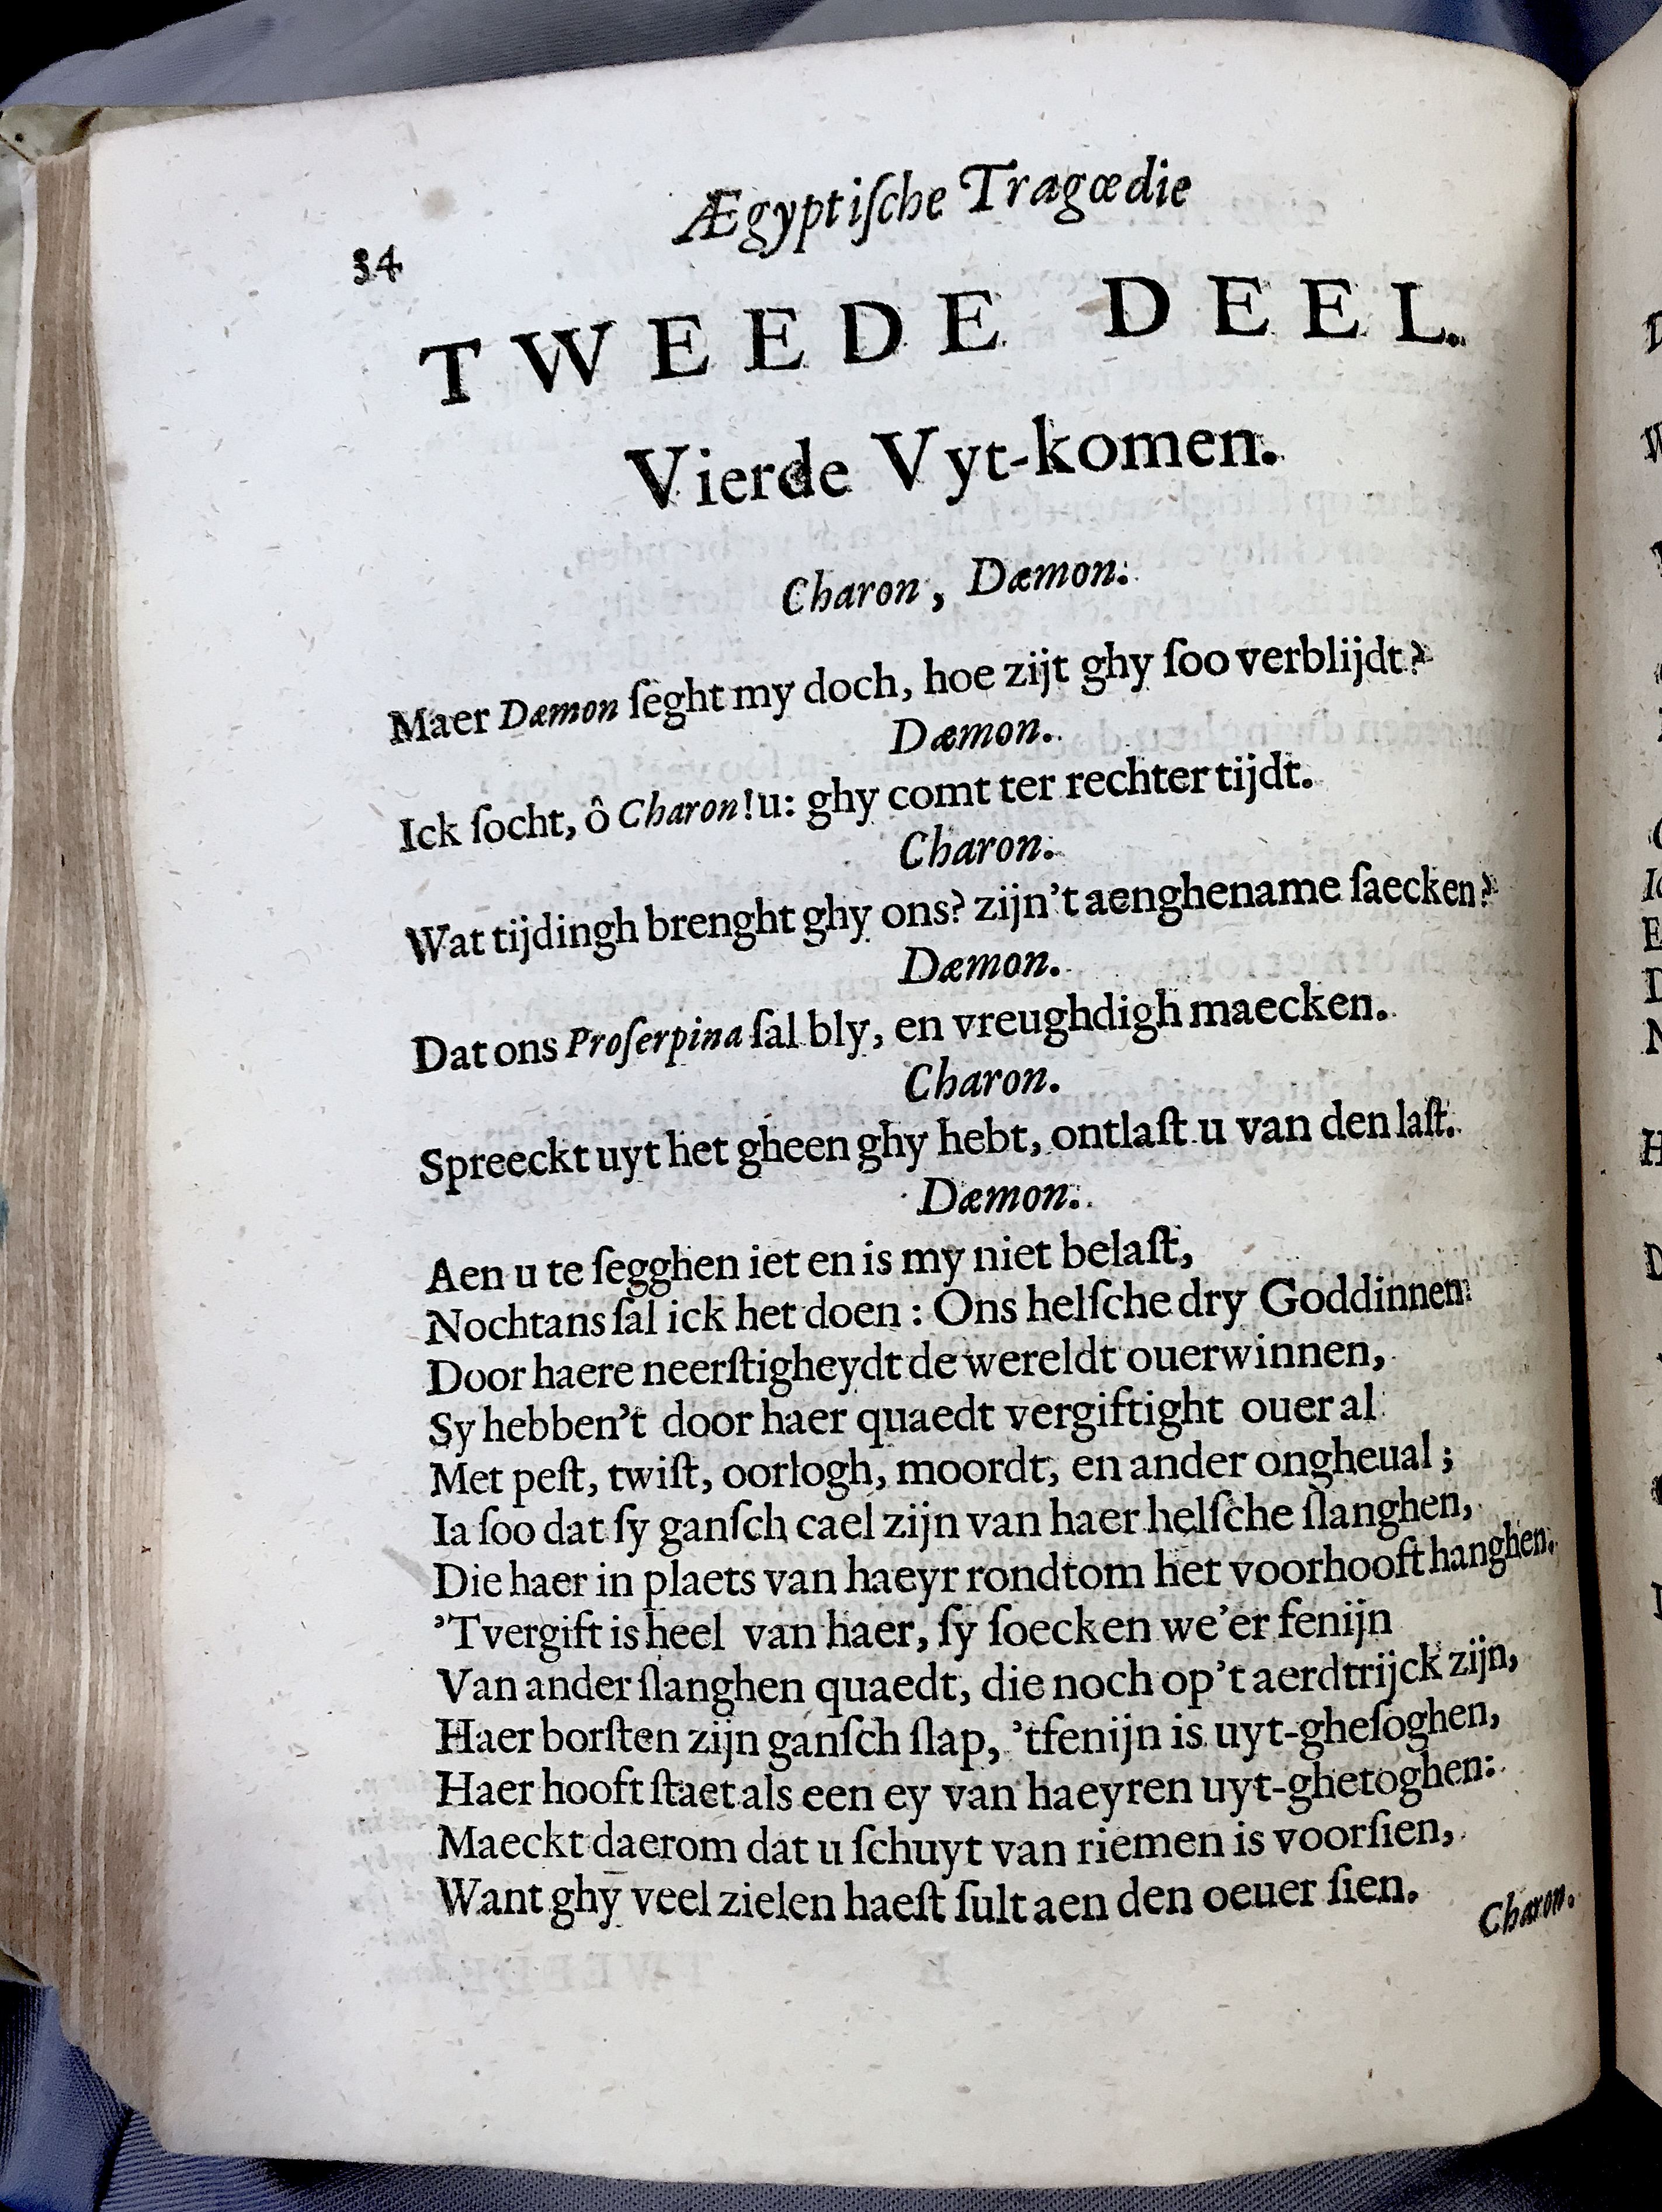 Ægyptiſche Tragœdie
34
TWEEDE DEEL.
Vierde Vyt-komen.
Charon, Dæmon.
Maer Dæmon ſeght my doch, hoe zijt ghy ſoo verblijdt?
Dæmon.
Ick ſocht, ô Charon! u: ghy comt ter rechter tijdt.
Charon.
Wat tijdingh brenght ghy ons? zijn't aenghename ſaecken?
Dæmon.
Dat ons Proſerpina ſal bly, en vreughdigh maecken.
Charon.
Spreeckt uyt het gheen ghy hebt, ontlaſt u van den laſt.
Dæmon.
Aen u te ſegghen iet en is my niet belaſt,
Nochtans ſal ick het doen : Ons helſche dry Goddinnen
Door haere neerſtigheydt de wereldt ouerwinnen,
Sy hebben't door haer quaedt vergiftight ouer al
Met peſt, twiſt, oorlogh, moordt, en ander ongheual ;
Ia ſoo dat ſy ganſch cael zijn van haer helſche ſlanghen,
Die haer in plaets van haeyr rondtom het voorhooft hanghen.
'Tvergift is heel van haer, ſy ſoecken we'er fenijn
Van ander ſlanghen quaedt, die noch op't aerdtrijck zijn,
Haer borſten zijn ganſch ſlap, 'tfenijn is uyt-gheſoghen,
Haer hooft ſtaet als een ey van haeyren uyt-ghetoghen:
Maeckt daerom dat u ſchuyt van riemen is voorſien,
Want ghy veel zielen haeſt ſult aen den oeuer ſien.
Charon.